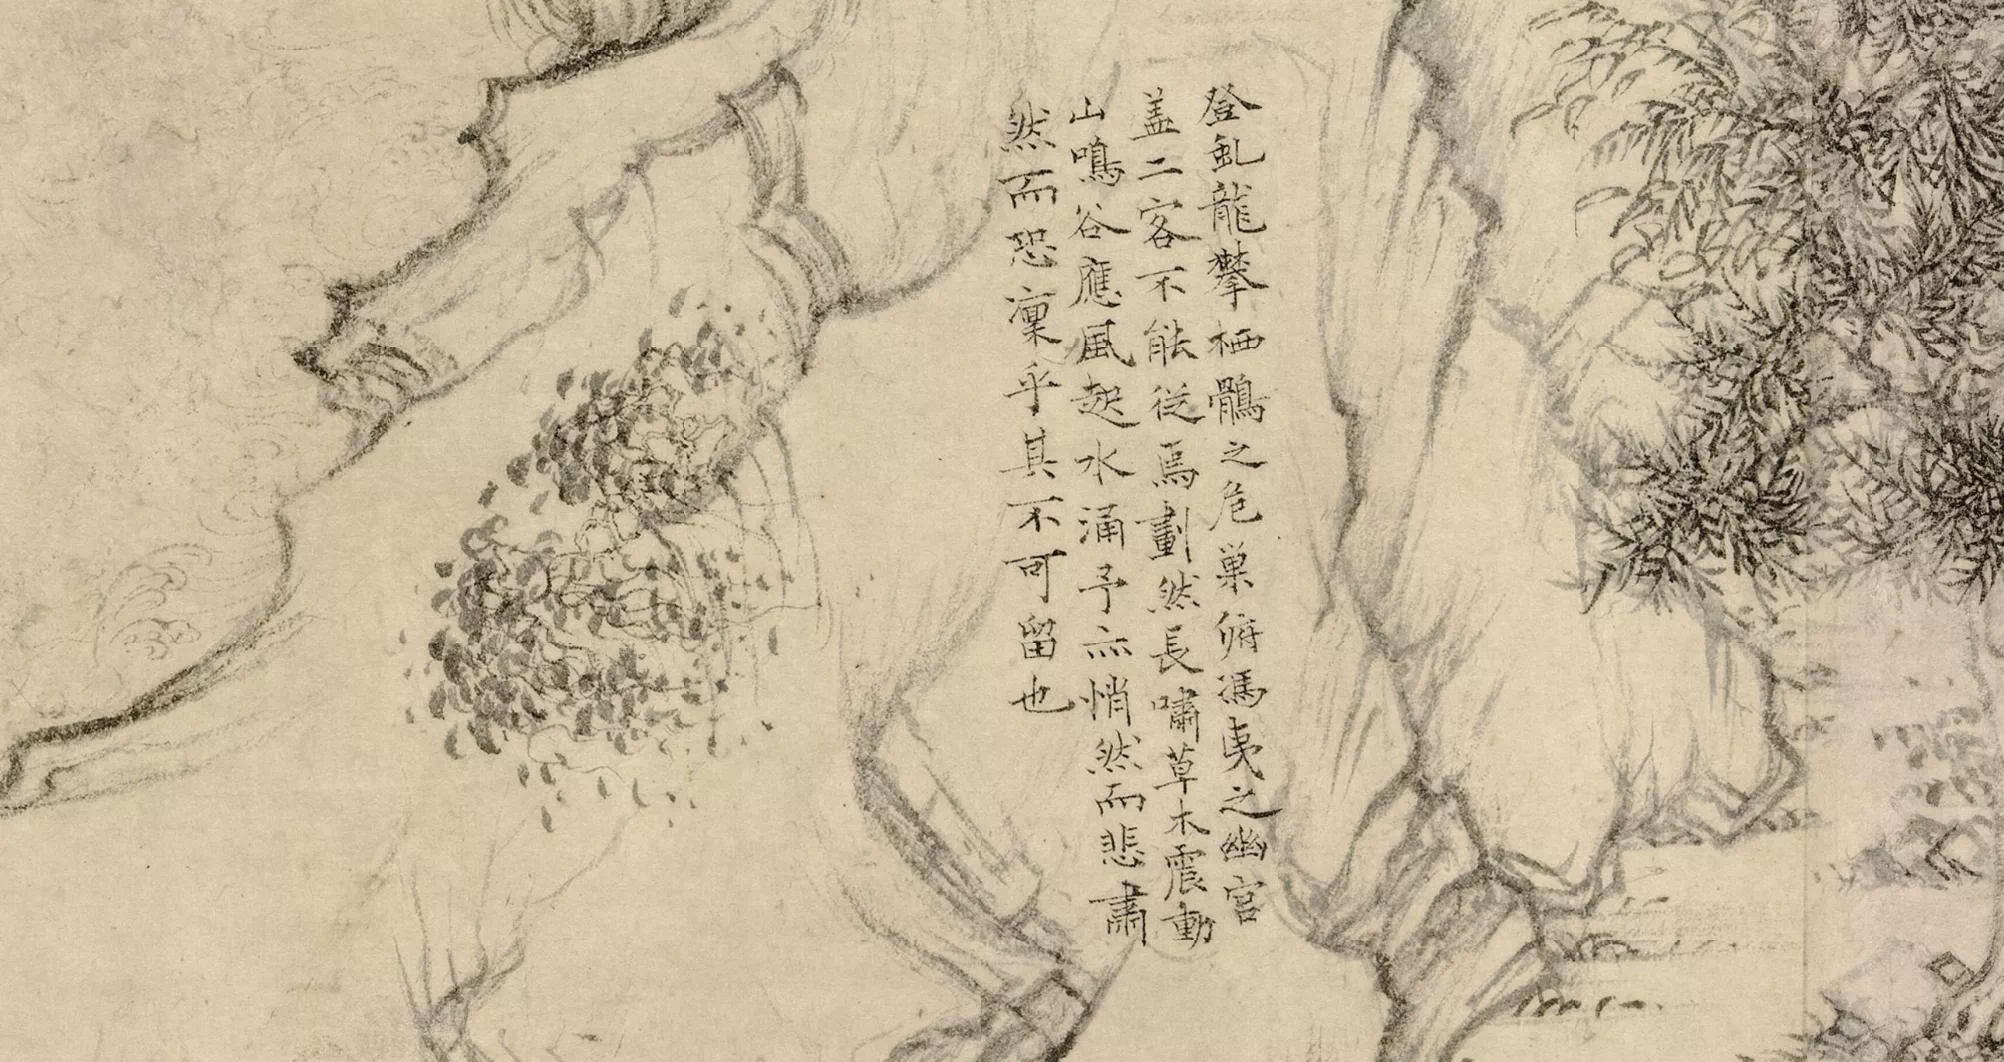 登虬龍攀栖鶻之危巢俯馮夷之幽宮
盖二客不能從焉劃然長嘯草木震動
山鳴谷應風起水涌予亦悄然而悲肅
然而恐凜乎其不可留也